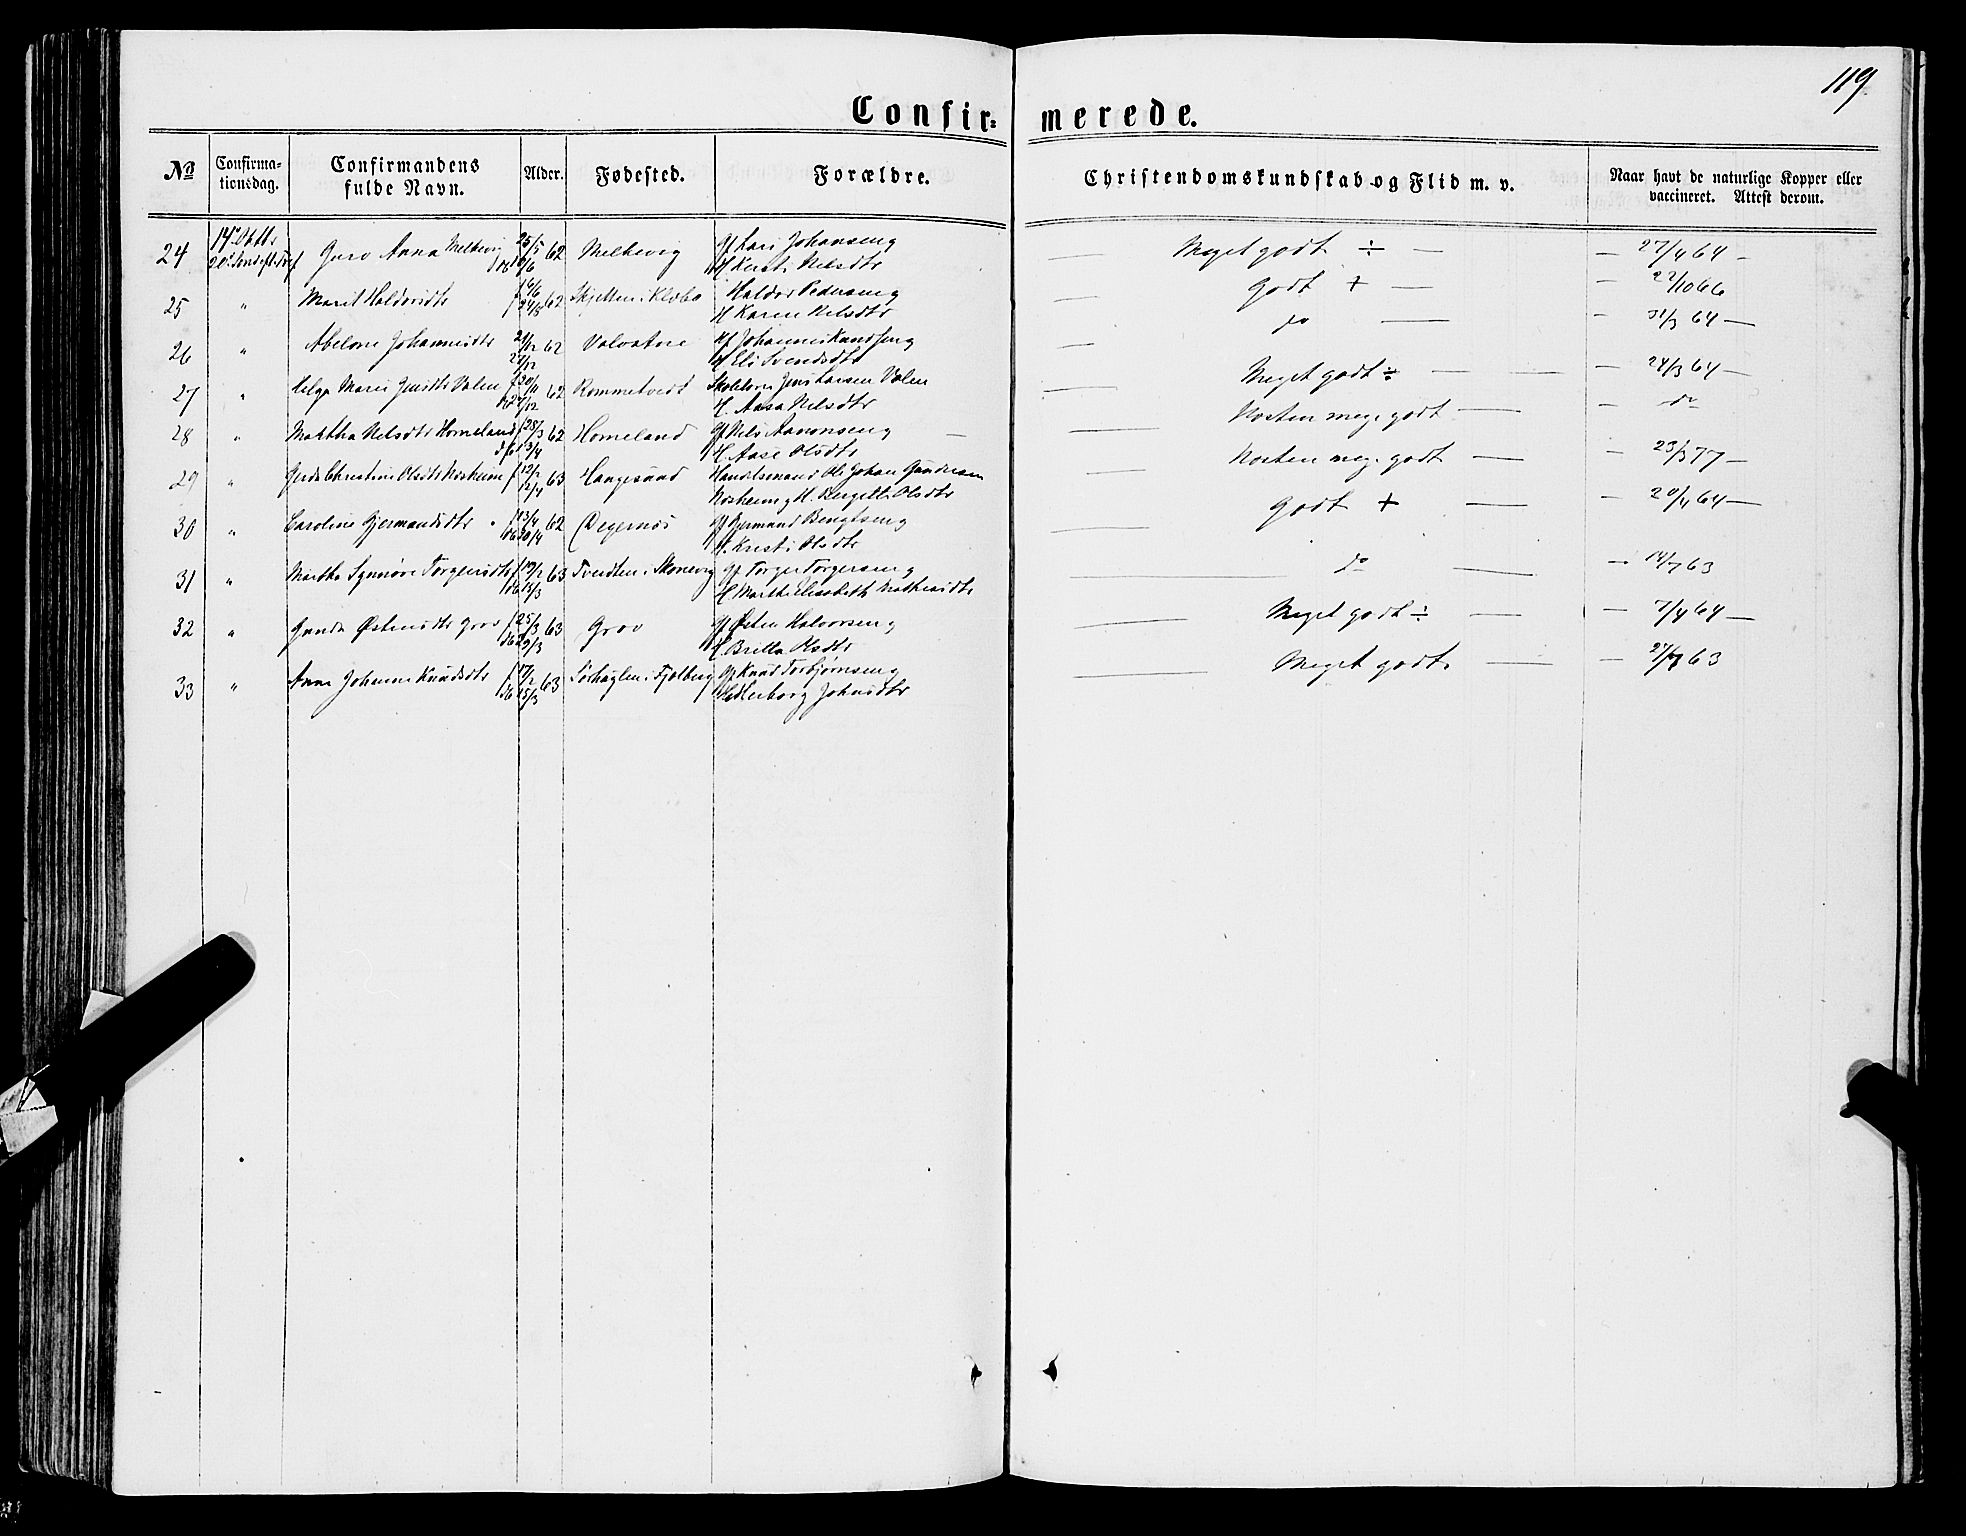 119.
Confir- merede.
No
Confirma-
tionsdag.
Confirmandens
fulde Navn.
Alder.
Fødested.
Forældre.
Christendomskundskab og Flid m. v.
Naar havt de naturlige Kopper eller
vaccineret. Attest derom.
24 14de Octbr Guro Anna Melkevig 25/5 62 Melkevig Gf Lars Johansen g
H Kersti Nelsdtr Meget godt ÷ — — 27/4 64 —
25 " Marit Haldorsdtr f 6/6 62 Skjelten i Haldor Pedersen g
H Karen Nelsdtr Godt + — — 22/10 66
26 " Abelone Johannesdtr 21/12 62 Valvatne Gf Johannes Knudsen g
H Eli Svendsdtr do — — 31/3 64 —
27 " Helga Marie Jensdtr Valen f 30/11 62 Rommetvedt Skolelærer Jens Larsen Valen
H. Aasa Nelsdtr Meget godt ÷ — — — 24/3 64 —
28 " Martha Nelsdtr Horneland f 28/3 62 Horneland Gf Nels Aanonsen g
H. Aase Olsdtr Næsten meg. godt — — do
29 " Gerda Christine Olsdtr f 12/2 63 Langesund Handelsmand Ole Johan Gundersen
g H. Bergitte Olsdtr Næsten meg. godt — — 23/3 77 —
30 " Caroline Gjermundsdtr f 13/4 62 Degernæs Gf Gjermund Bengtsen g
H. Kristi Olsdtr Godt + — — 20/4 64 —
31 " Martha Synnøve Torgersdtr f 19/2 63 Tvedten i Skonevig Gf Torger Torgersen g
H Marthe Elisabeth Mathiasdtr do — — 14/7 63
32 " Gunda Østensdtr Grov f 25/3 63 Grov Gf Østen Halvorsen g
H Britta Olsdtr Meget godt ÷ — — 7/4 64 —
33 " Anna Johanne Knudsdtr f 17/2 63 i Fjelberg Gf Knud Torbjørnsen g
H Herborg Johnsdtr Meget godt. — — 27/7 63